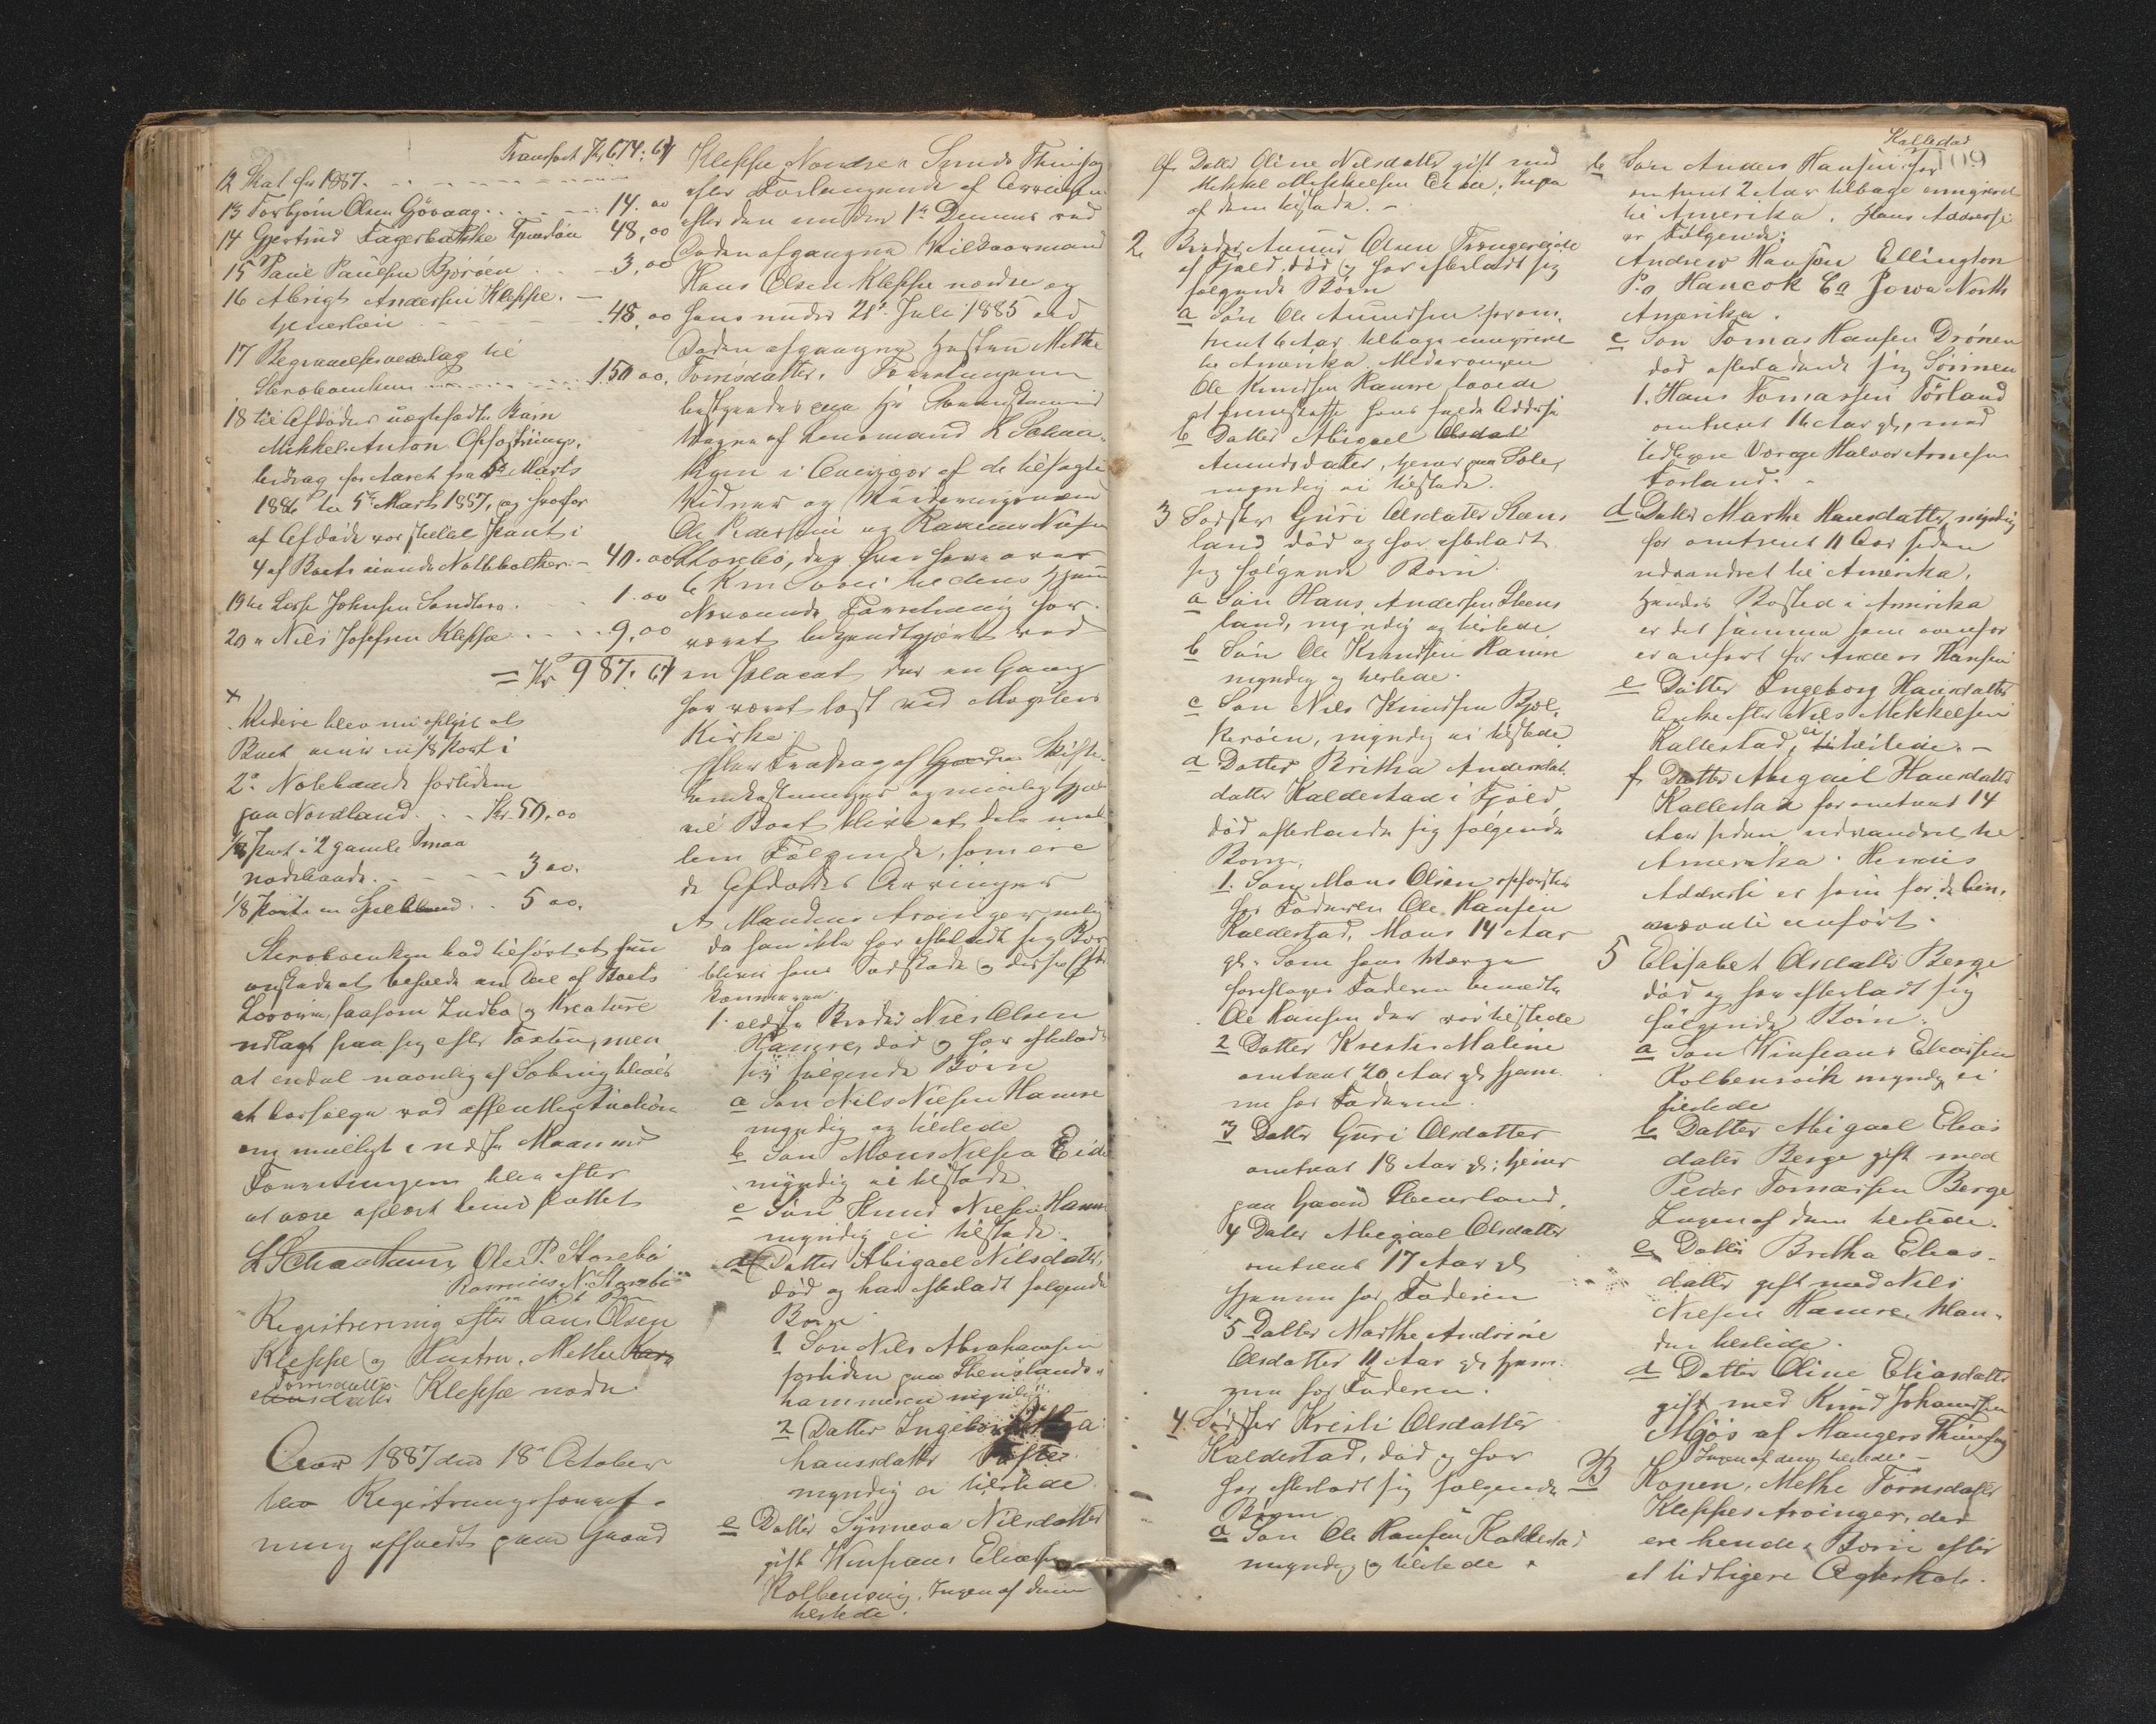 Transport Kr. 674.64
12 Skat for 1887.
13 Torbjørn Olsen Gjøvaag 14.00
14 Gjertrud Fagerbakke Tjenerløn 48,00
15 Paul Paulsen Bjørøen 3,00
16 Abrigt Andersen Kleppe.
tjenerløn 48,00
17 Begravelsesvederlag til
Sterboenken 150 00.
18 til Afdødes uægtefødte Barn
Mikkel Anton Opfostrings-
bidrag for Aaret fra 5te Marts
1886 til 5te Marts 1887, og hvorfor
af Afdøde var stillet Pant i
4 af Boets eiende Notelodder. 40.00
19 til Lasse Johnsen Sandtorv. 1.00
20 " Nils Josefsen Kleppe 9,00
= Kr 987.64
x
Videre blev nu oplyst at
Boet eier i 1/8 Part i
2de Notebrug for tiden
paa Nordland. Kr. 50,00
1/8 Part i 2 gamle smaa
nodebaade. 3 00.
1/8 Part i en 5 00.
Sterboenken bad tilført at hun
ønskede at beholde en Del af Boets
Løsøre, saasom Indbo og Kreature
udlagt paa sig efter Taxten, men
at endel navnlig af Søbrug bliver
at bortsælge ved offentlig Auktion
og muligt i næste Maaned
Forretningen blev efter
at være oplæst herved sluttet
L Schanhning Ole P. Storebø
Rasmus N. Storebø
m. p. P.
Registrering efter Hans Olsen
Kleppe og Hustru, Methe
Tomesdatter Kleppe nordre
Aar 1887 den 18de October
blev Registreringsforret-
ning afholdt paa Gaard
Kleppe Nordre i Sunds Thinglag
efter Forlangende af Arvinger
efter den under 1ste Dennes ved
Døden afgangne Vilkaarsmand
Hans Olsen Kleppe nordre og
hans under 21de Juli 1885 ved
Døden afgangne Hustru Methe
Tomesdatter. Forretningen
bestyredes
af Lensmand L Schan-
i Overvær af de tilsagte
Vidner og Vurderingsmænd
Ole Pedersen og Rasmus Nilsen
Storebø, der hver have over
6 Km Vei til deres Hjem
Nærværende Forretning har
været bekjendtgjort ved
en Placat, der en Gang
har været læst ved Møgsters
Kirke.
Efter Fradrag af Gjæld og Skifte-
omkostninger
vil Boet blive at dele mel-
lem Følgende, som ere
de Afdødes Arvinger
A Mandens Arvinger, nemlig
da han ikke har efterladt sig Børn
blive hans Sødskende og disses Af-
kommere.
1. eldste Broder Nils Olsen
Hamre, død og har efterladt
sig følgende Børn
a Søn Nils Nilsen Hamre
myndig og tilstede
b Søn Mons Nilsen Eide
myndig ei tilstede.
c Søn Knud Nilsen Hamre
myndig ei tilstede
d Datter Abigael Nilsdatter,
død og har efterladt følgende
Børn
1 Søn Nils Abrahamsen
for tiden paa Stenslands-
hammeren myndig
2 Datter Ingeborg
hansdatter Tofte
myndig ei tilstede
e Datter Synneva Nilsdatter
gift Winsents Eliassen
Kolbensvig. Ingen af dem
tilstede.
f Datter Oline Nilsdatter gift med
Mikkel Mikkelsen Eide, Ingen
af dem tilstede.
2. Broder Amund Olsen Trængereide
af Fjeld død og har efterladt sig
følgende Børn
a Søn Ole Amundsen for om-
trent 6 Aar tilbage emigreret
til Amerika. Medarvingen
Ole Knudsen Hamre lovede
at fremskaffe hans fulde Addresse
b Datter Abigael Olsdat
Amundsdatter, tjener paa Sole,
myndig ei tilstede.
3 Søster Guri Olsdatter Stens-
land død og har efterladt
sig følgende Børn
a Søn Hans Andersen Stens-
land, myndig og tilstede
b Søn Ole Knudsen Hamre
myndig og tilstede.
c Søn Nils Knudsen Bjel-
kerøen, myndig ei tilstede
d Datter Britha Andersdat-
datter Kaldestad i Fjeld,
død efterladende sig følgende
Børn
1. Søn Mons Olsen opfostres
hos Faderen Ole Hansen
Kaldestad, Mons 14 Aar
gl. Som hans Værge
foreslaaes Faderen bemeldte
Ole Hansen der var tilstede
2 Datter Kristi Maline
omtrent 20 Aar gl hjem-
me hos Faderen
3 Datter Guri Olsdatter
omtrent 18 Aar gl; tjener
paa Gaard
4 Datter Abigael Olsdatter
omtrent 17 Aar gl
hjemme hos Faderen
5 Datter Marthe Andrine
Olsdatter 11 Aar gl hjem-
me hos Faderen.
4. Søster Kristi Olsdatter
Kaldestad, død og har
har efterladt sig følgende
Børn
a Søn Ole Hansen Kaldestad
myndig og tilstede
109
Kallestad
b Søn Anders Hansen for
omtrent 2 Aar tilbage emigreret
til Amerika. Hans Addresse
er Følgende:
Andrew Hanson Ellington
P.o Hancok Co Jowa North
Amerika.
c Søn Tomas Hansen Drønen
død efterladende sig Sønnen
1. Hans Tomassen Førland
omtrent 16 Aar gl, med
tidligere Værge Halvor Arnesen
Førland.
d Datter Marthe Hansdatter, myndig
for omtrent 11 Aar siden
udvandret til Amerika.
Hendes Bosted i Amerika
er det samme som ovenfor
er anført for Anders Hansen
e Datter Ingeborg Hansdatter
Enke efter Nils Mikkelsen
Kallestad, ei tilstede. -
f Datter Abigail Hansdatter
Kallestad for omtrent 14
Aar siden udvandret til
Amerika. Hendes
Addresse er som for de Oven-
nævnte anført.
5 Elisabet Olsdatter Berge
død og har efterladt sig
følgende Børn.
a Søn Winsents Eliassen
Kolbensvik myndig ei
tilstede
b Datter Abigael Elias-
datter Berge gift med
Peder Tomassen Berge
Ingen af dem tilstede.
c Datter Britha Elias-
datter gift med Nils
Nilsen Hamre. Man-
den tilstede.
d Datter Oline Eliasdatter
gift med Knud Johannesen
Mjøs af Mangers Thinglag
Ingen af dem tilstede. -
B Konen, Methe Tomesdatter
Kleppes Arvinger, der
ere hendes Børn efter
et tidligere Ægteskab.